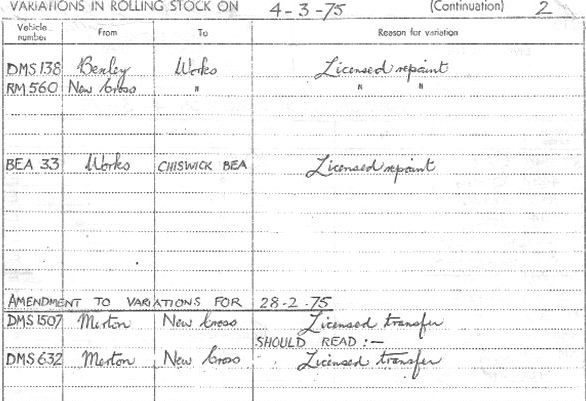 VARIATIONS IN ROLLING STOCK ON 4-3-75 (Continuation) 2
Vehicle number From To Reason for variation
DMS 138 Bexley Works Licensed repaint
RM 560 New Cross " " "
BEA 33 Works CHISWICK BEA Licensed repaint
AMENDMENT TO VARIATIONS FOR 28-2-75
DMS 1507 Merton New Cross Licensed transfer
SHOULD READ :—
DMS 632 Merton New Cross Licensed transfer